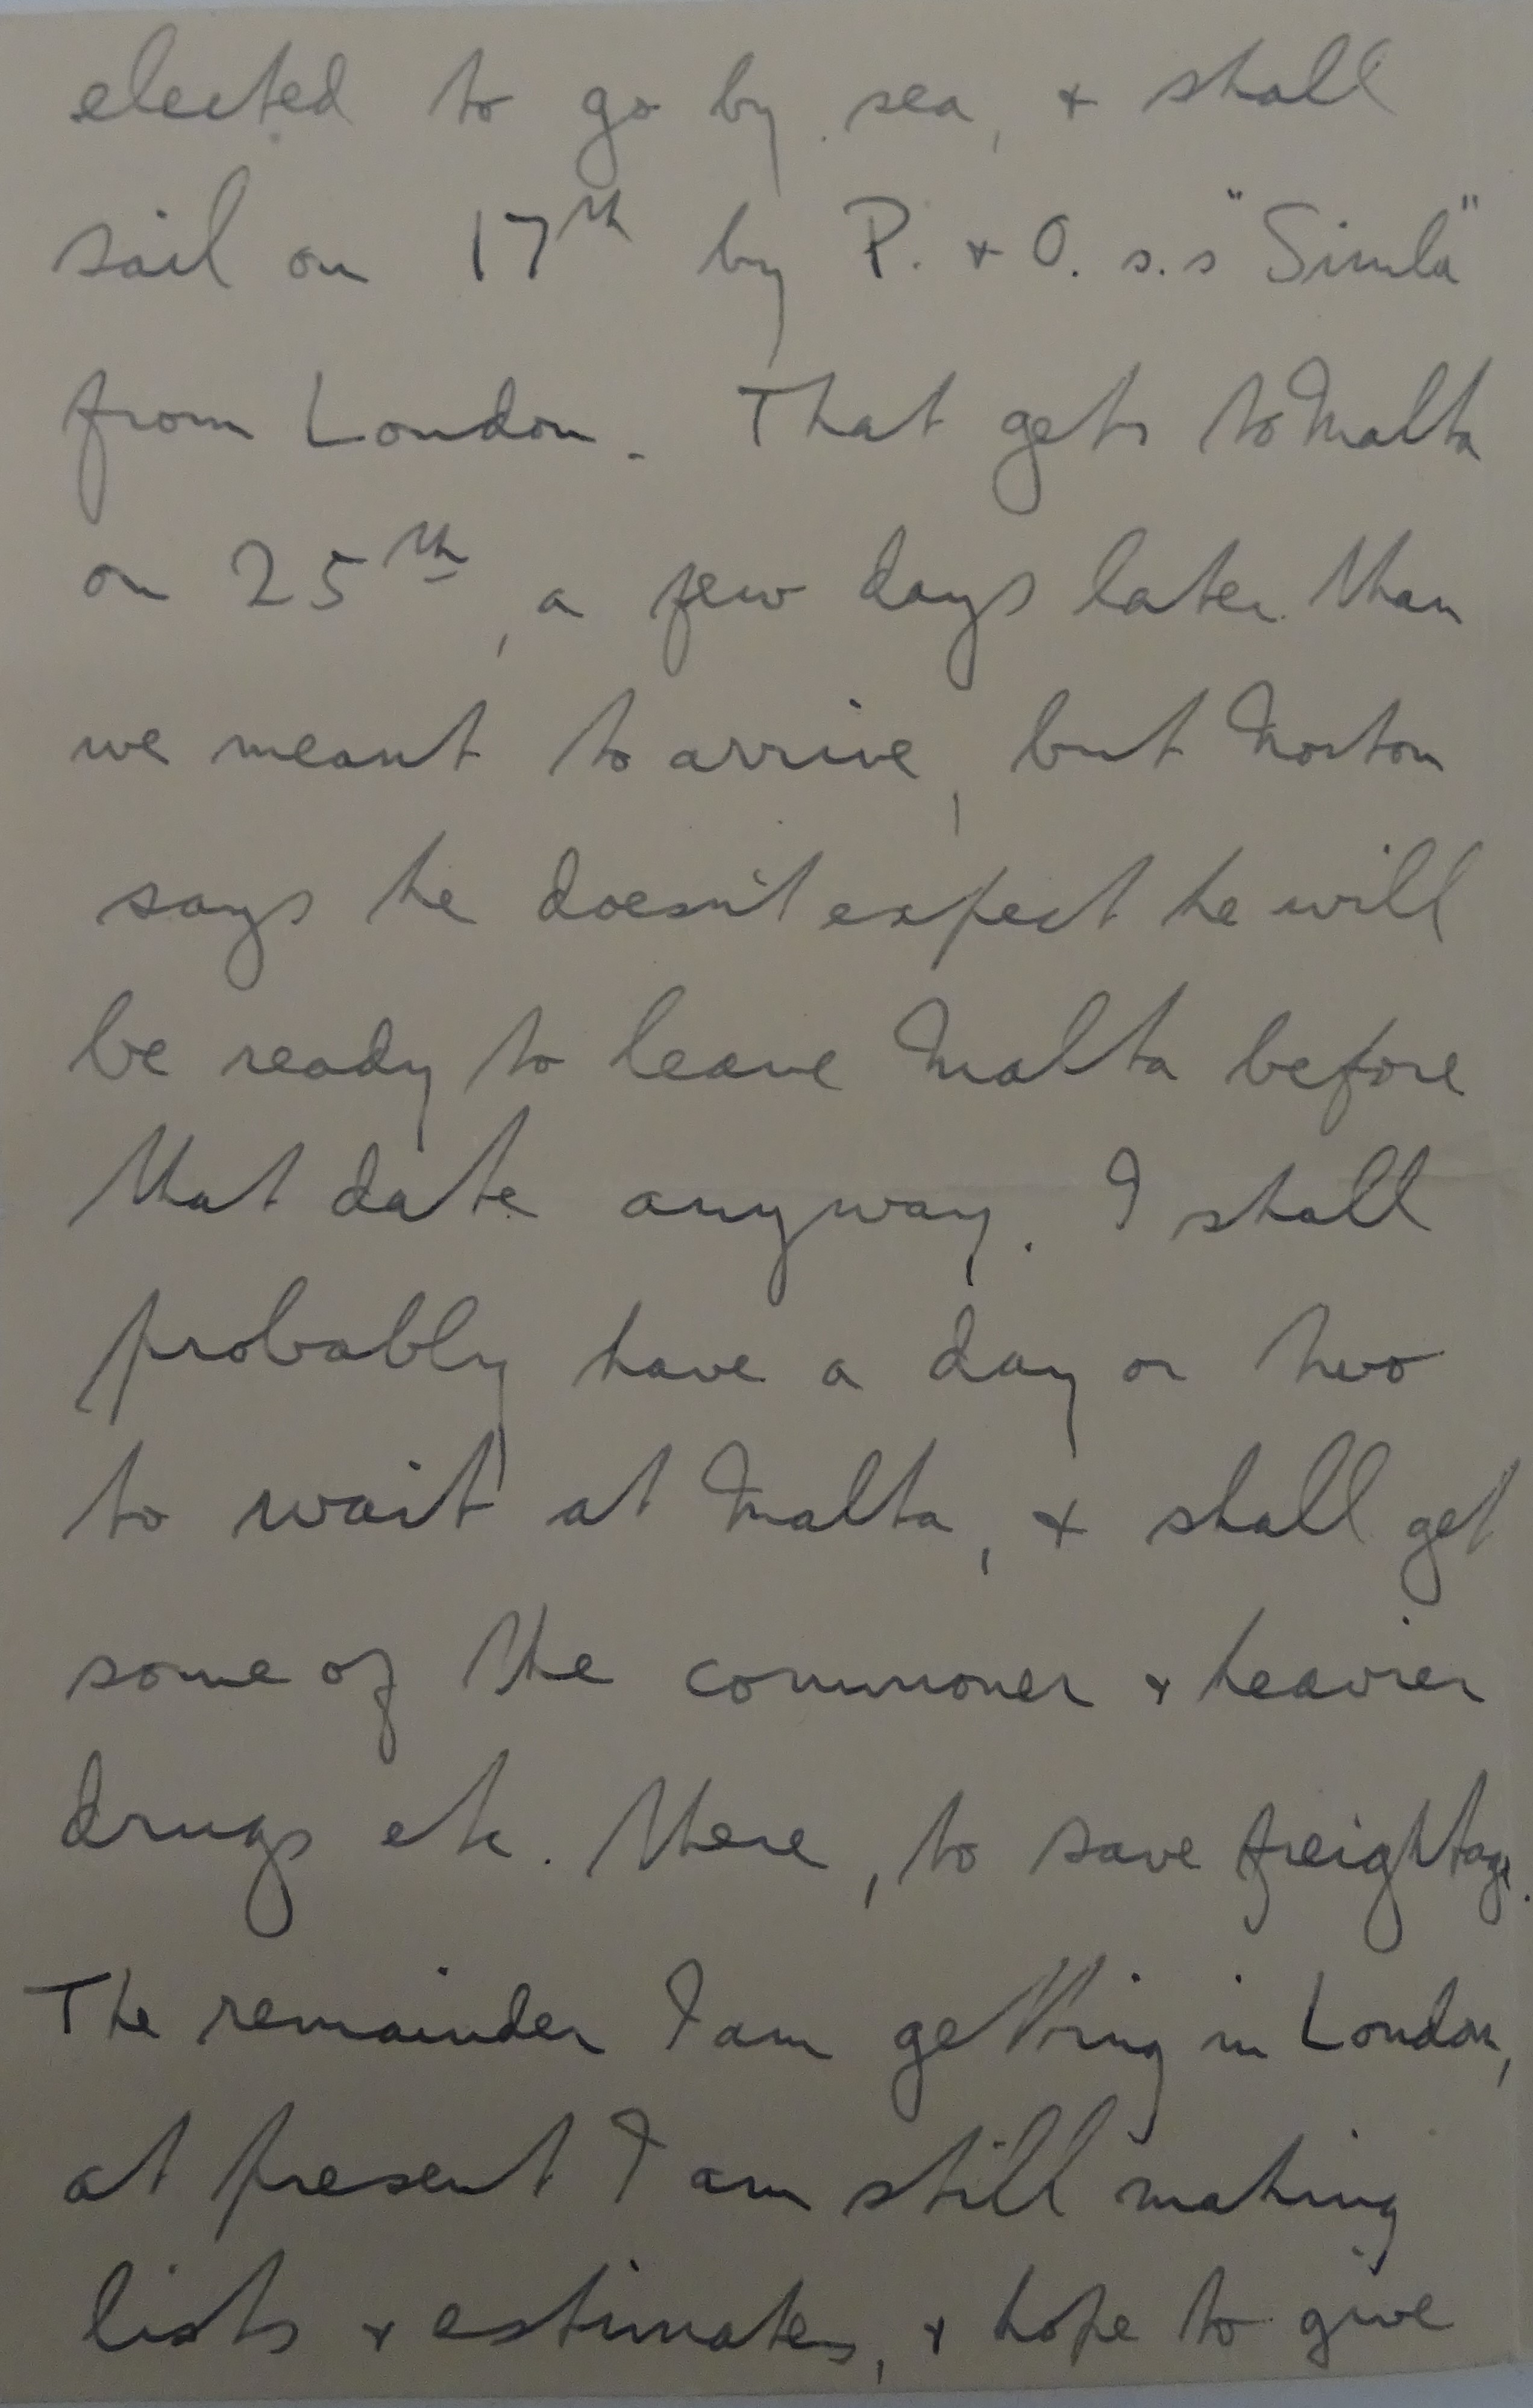 elected to go by sea, & shall
sail on 17th by P. & O. s.s "Simla"
from London. That gets to Malta
on 25th, a few days later than
we meant to arrive, but Norton
says he doesn't expect he will
be ready to leave Malta before
that date anyway. I shall
probably have a day or two
to wait at Malta, & shall get
some of the commoner & heavier
drugs etc. there, to save freightage.
The remainder I am getting in London,
at present I am still making
lists & estimates, & hope to give